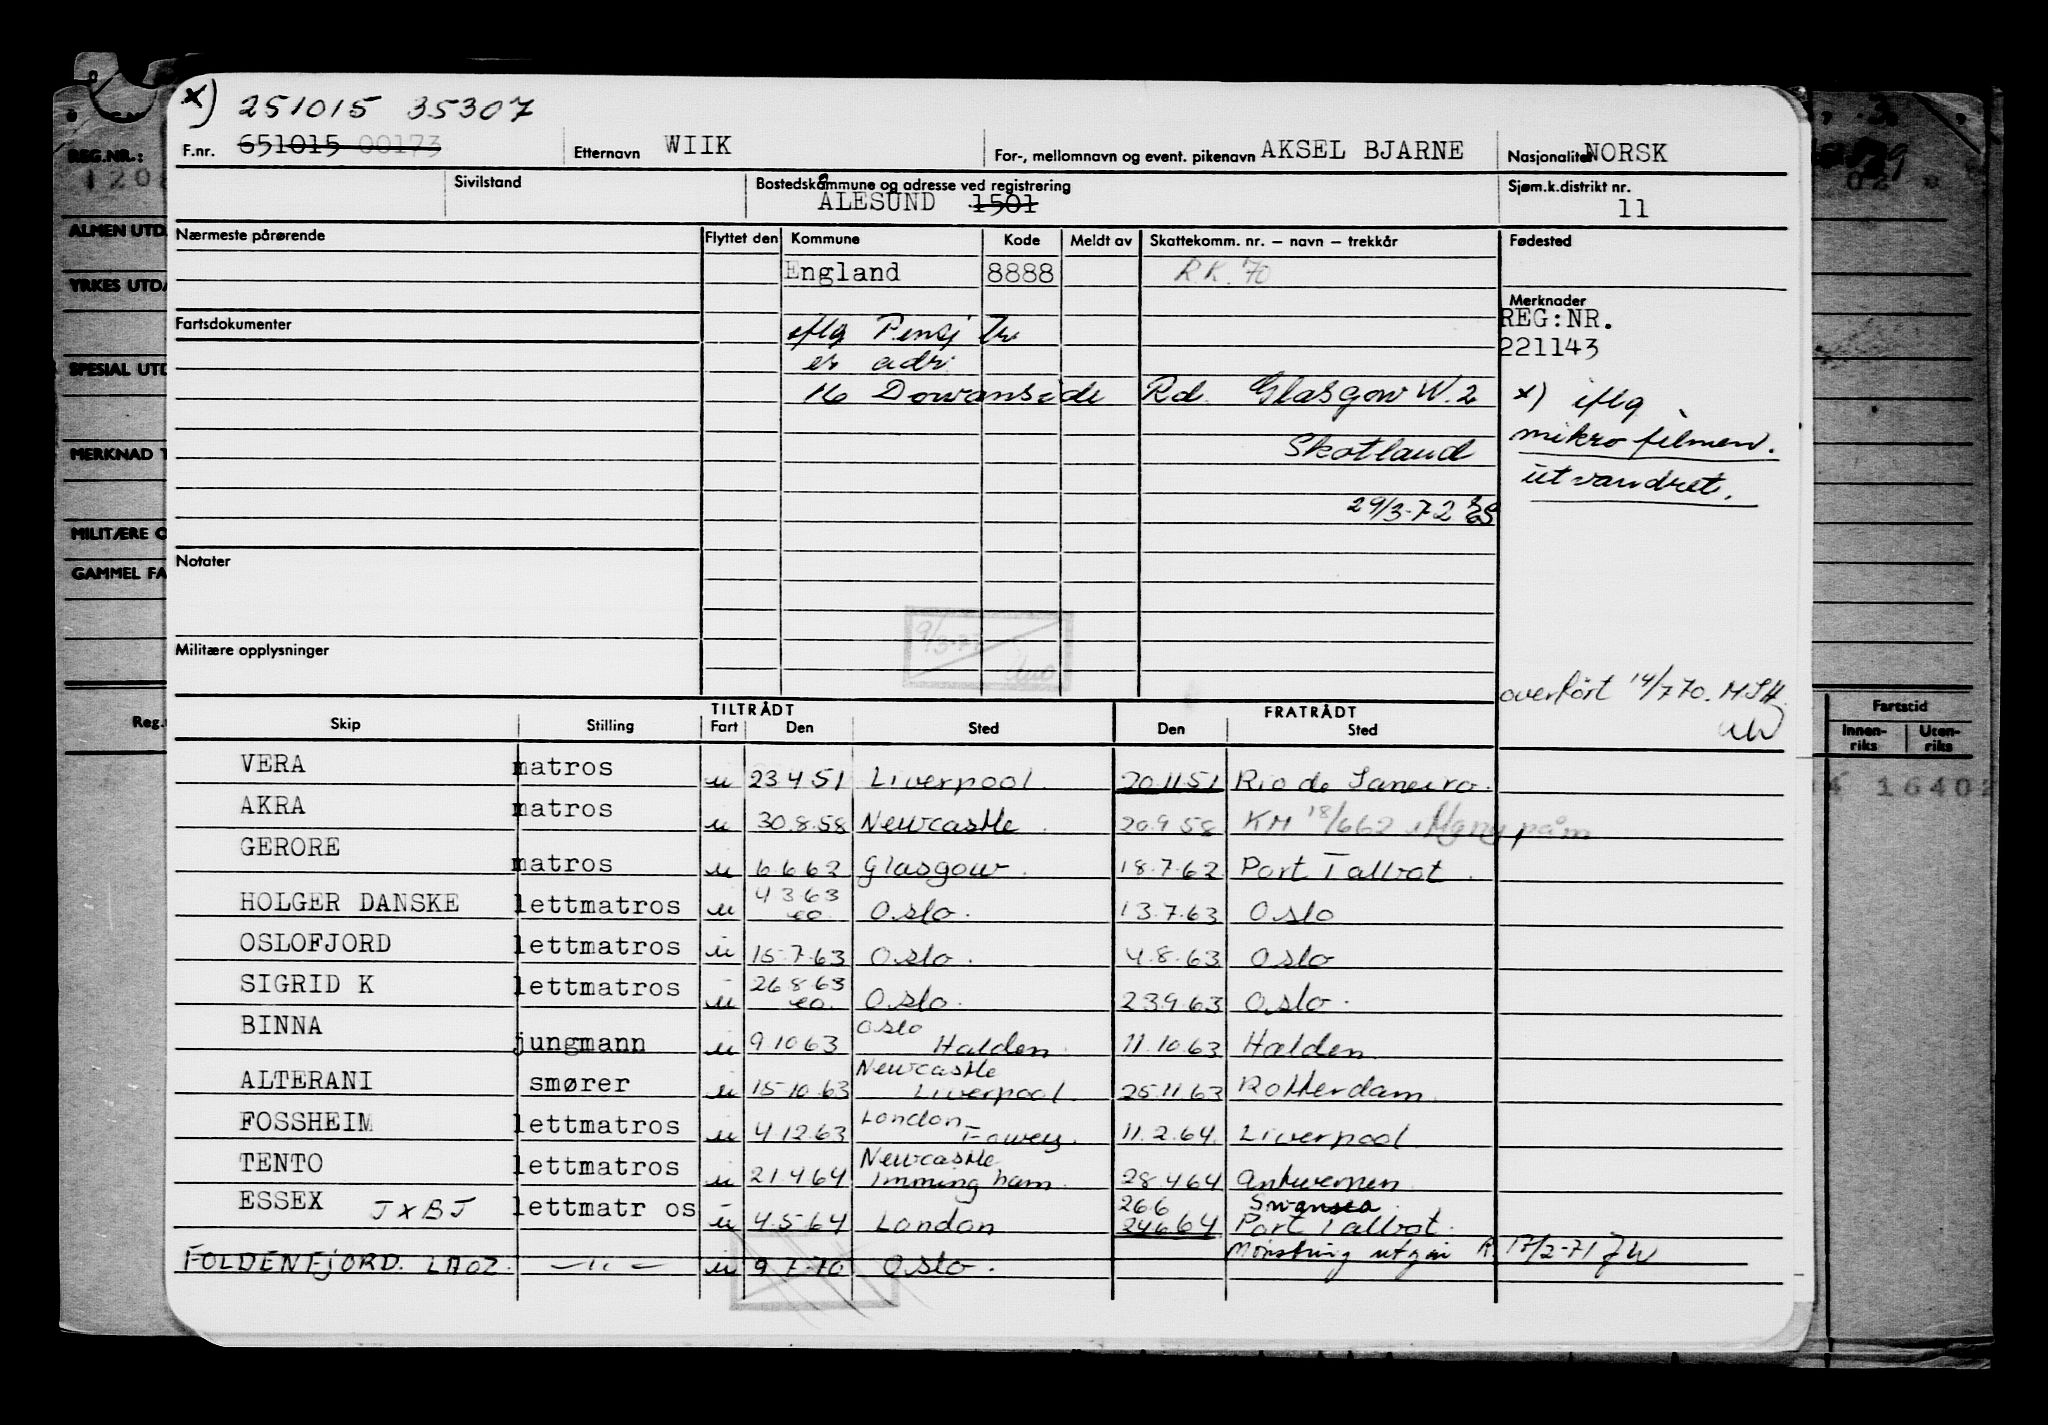 x) 251015 35307
F.nr. 651015 00173 Etternavn WIIK For-, mellomnavn og event. pikenavn AKSEL BJARNE Nasjonalitet NORSK
Sivilstand Bostedskommune og adresse ved registrering Sjøm.k.distrikt nr.
ÅLESUND 1501 11
Nærmeste pårørende Flyttet den Kommune Kode Meldt av Skattekomm. nr. – navn – trekkår Fødested
England 8888 R.K. 70
Merknader
REG:NR.
221143
Fartsdokumenter
iflg Pensj Tr
er adr.
16 Dowanside Rd. Glasgow W.2
Skotland
29/3-72
x) iflg
mikrofilmen.
utvandret.
Notater
Militære opplysninger
overført 14/7 70.
TILTRÅDT FRATRÅDT
Skip Stilling Fart Den Sted Den Sted
VERA matros u 23 4 51 Liverpool. 20.11.51 Rio de Janeiro.
AKRA matros u 30.8.58 Newcastle. 20.9.58 KM 18/6 62
GERORE matros u 6.6.62 Glasgow. 18.7.62 Port Talbot.
HOLGER DANSKE lettmatros u 4 3 63 eo. Oslo. 13.7.63 Oslo
OSLOFJORD lettmatros u 15.7.63 Oslo. 4.8.63 Oslo
SIGRID K lettmatros u 26 8 63 eo. Oslo. 23.9.63 Oslo.
BINNA jungmann u 9 10 63 Oslo Halden. 11.10.63 Halden
ALTERANI smører u 15.10.63 Newcastle Liverpool. 25.11.63 Rotterdam.
FOSSHEIM lettmatros u 4.12.63 London Fowey. 11.2.64. Liverpool
TENTO lettmatros u 21.4.64 Newcastle Immingham. 28.4.64 Antwerpen
ESSEX J x B J lettmatr os u 4.5.64 London 26 6 24.6.64 Swansea Port Talbot.
FOLDENFJORD. LAOZ. — " — u 9.7.70 Oslo. Mønstring utgår R. 17/2-71
REG.NR.:
ALMEN UTD
YRKES UTDA
SPESIAL UTD
MERKNAD T
MILITÆRE O
GAMMEL FA
Fartstid
Innen-riks Uten-riks
16402